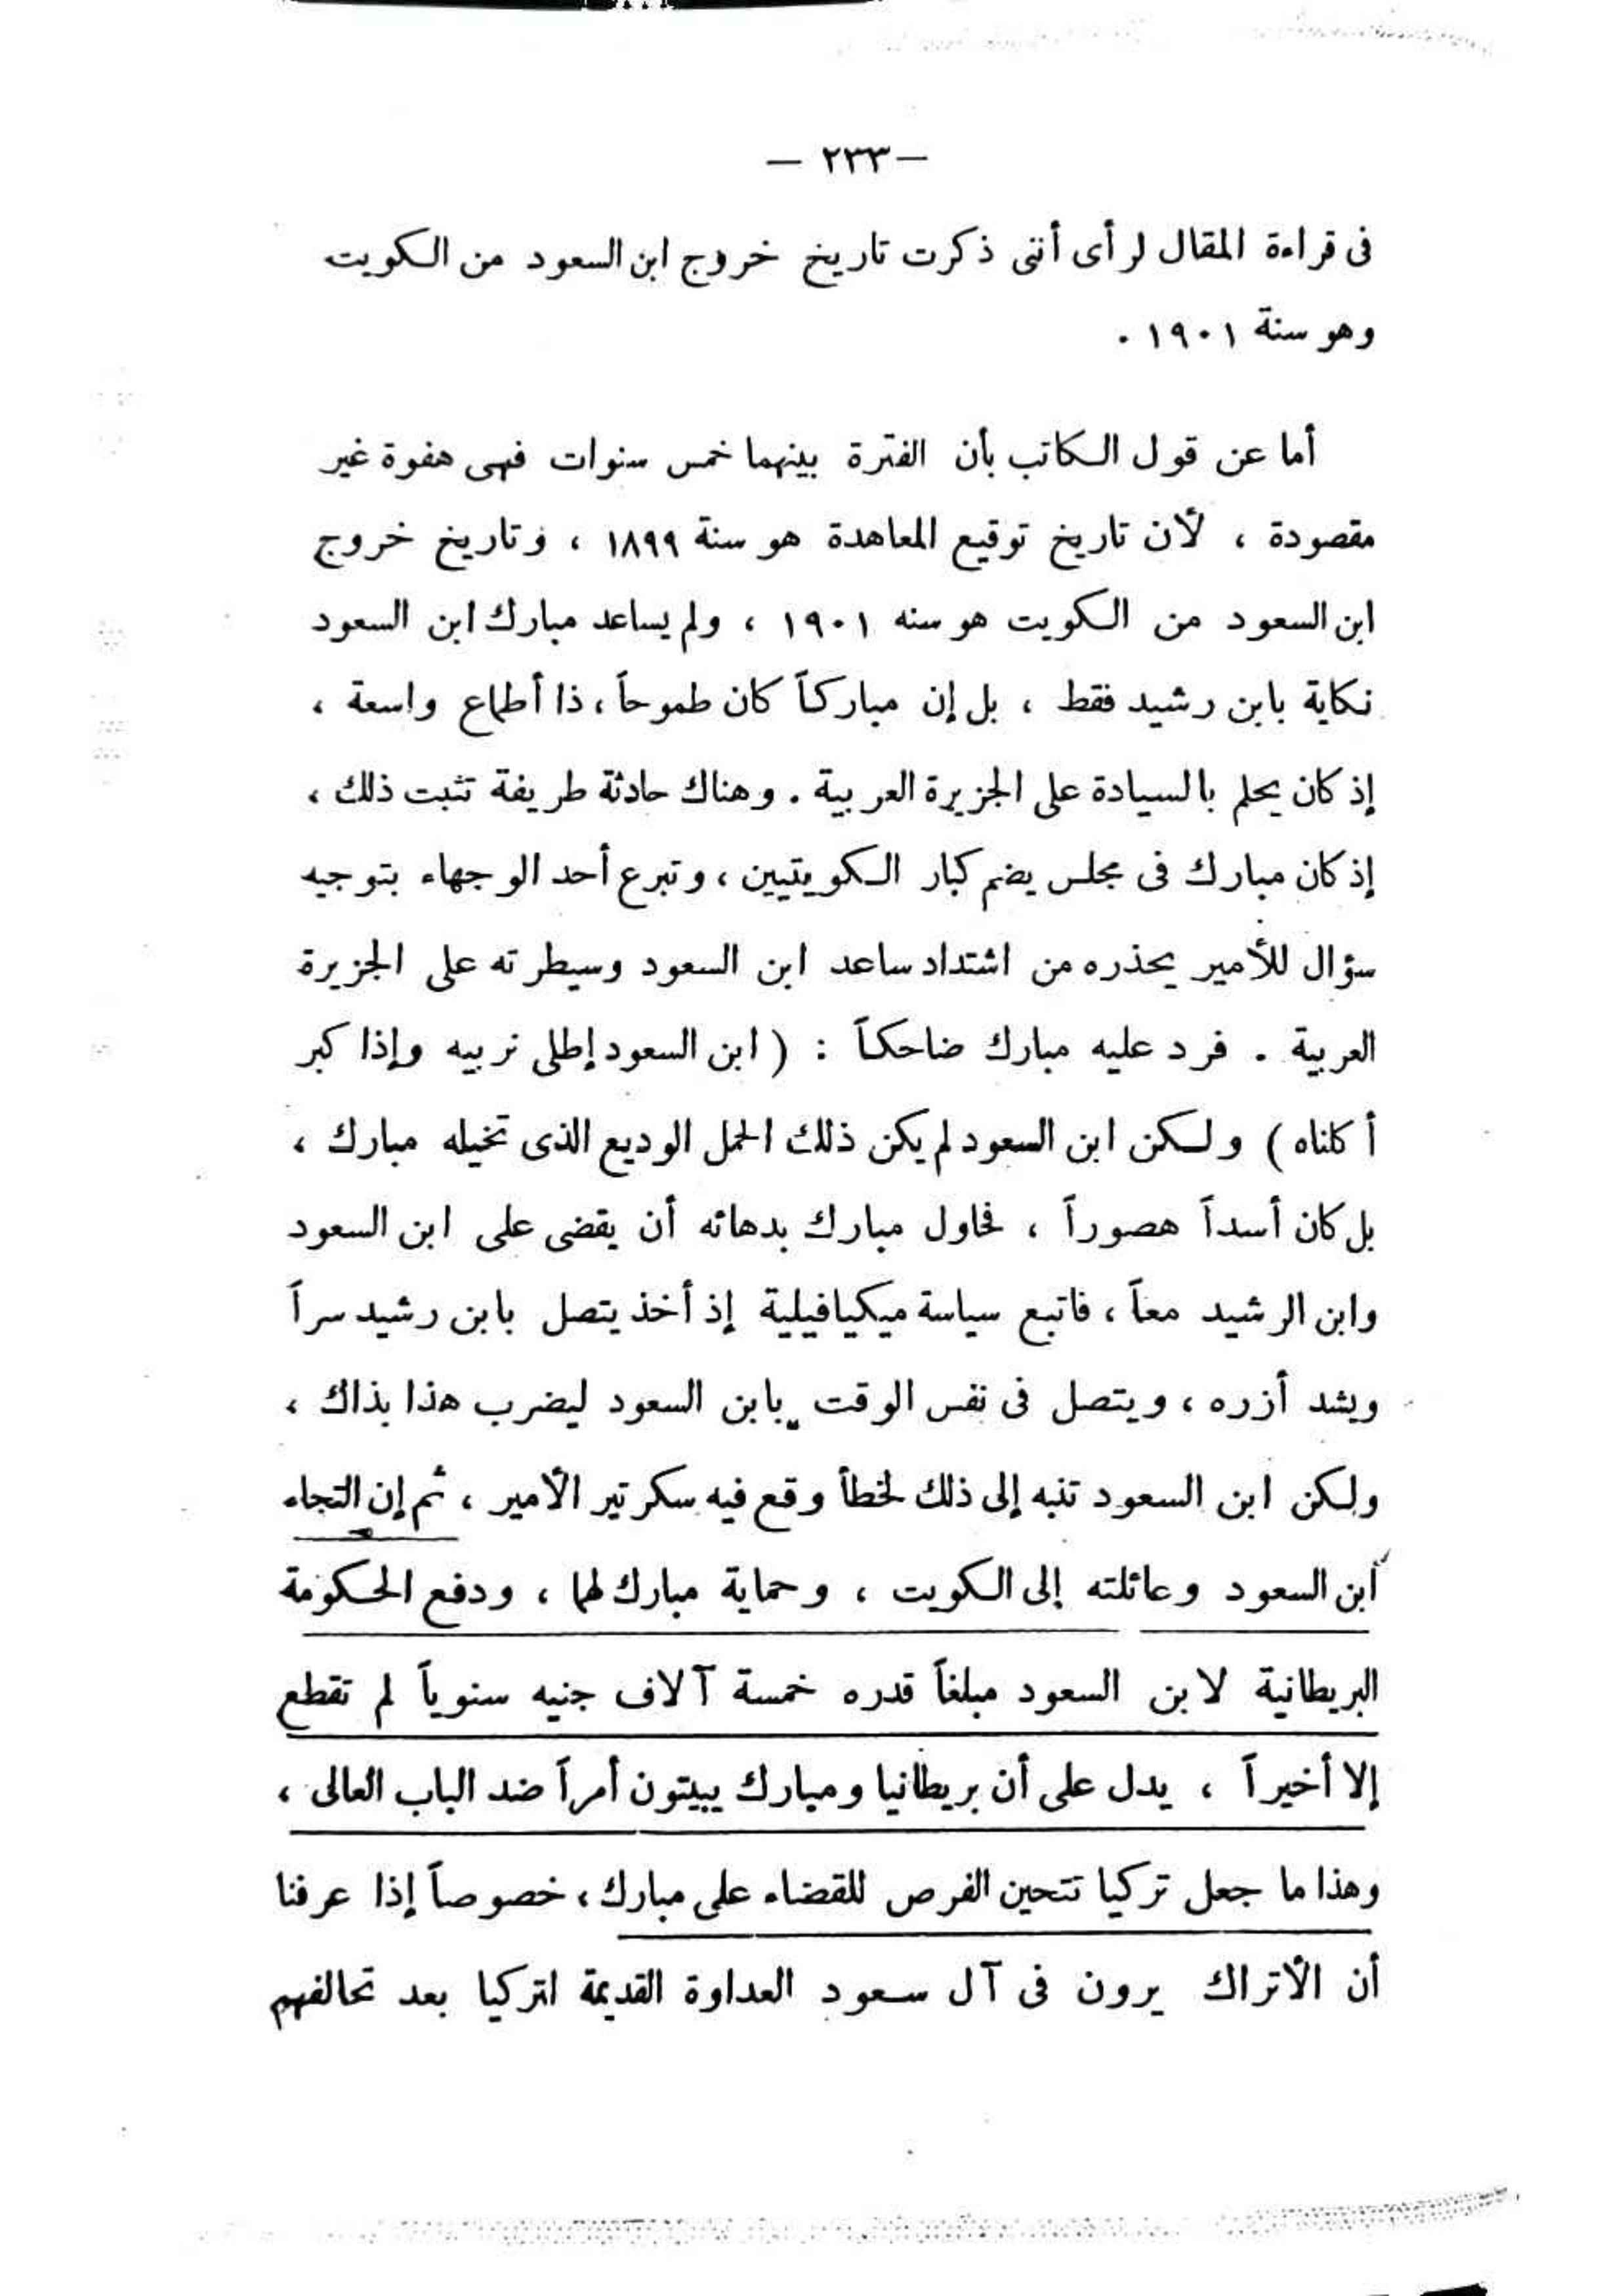 — ٢٣٣ —
فى قراءة المقال لرأى أننى ذكرت تاريخ خروج ابن السعود من الكويت
وهو سنة ١٩٠١ .
أما عن قول الكاتب بأن الفترة بينهما خمس سنوات فهى هفوة غير
مقصودة ، لأن تاريخ توقيع المعاهدة هو سنة ١٨٩٩ ، وتاريخ خروج
ابن السعود من الكويت هو سنه ١٩٠١ ، ولم يساعد مبارك ابن السعود
نكاية بابن رشيد فقط ، بل إن مباركاً كان طموحاً ، ذا أطماع واسعة ،
إذ كان يحلم بالسيادة على الجزيرة العربية . وهناك حادثة طريفة تثبت ذلك ،
إذ كان مبارك فى مجلس يضم كبار الكويتيين ، وتبرع أحد الوجهاء بتوجيه
سؤال للأمير يحذره من اشتداد ساعد ابن السعود وسيطرته على الجزيرة
العربية . فرد عليه مبارك ضاحكاً : ( ابن السعود إطلى نربيه وإذا كبر
أكلناه ) ولكن ابن السعود لم يكن ذلك الحمل الوديع الذى تخيله مبارك ،
بل كان أسداً هصوراً ، فحاول مبارك بدهائه أن يقضى على ابن السعود
وابن الرشيد معاً ، فاتبع سياسة ميكيافيلية إذ أخذ يتصل بابن رشيد سراً
ويشد أزره ، ويتصل فى نفس الوقت بابن السعود ليضرب هذا بذاك ،
ولكن ابن السعود تنبه إلى ذلك لخطأ وقع فيه سكرتير الأمير ، ثم إن التجاء
ابن السعود وعائلته إلى الكويت ، وحماية مبارك لهما ، ودفع الحكومة
البريطانية لابن السعود مبلغاً قدره خمسة آلاف جنيه سنوياً لم تقطع
إلا أخيراً ، يدل على أن بريطانيا ومبارك يبيتون أمراً ضد الباب العالى ،
وهذا ما جعل تركيا تتحين الفرص للقضاء على مبارك ، خصوصاً إذا عرفنا
أن الأتراك يرون فى آل سعود العداوة القديمة لتركيا بعد تحالفهم